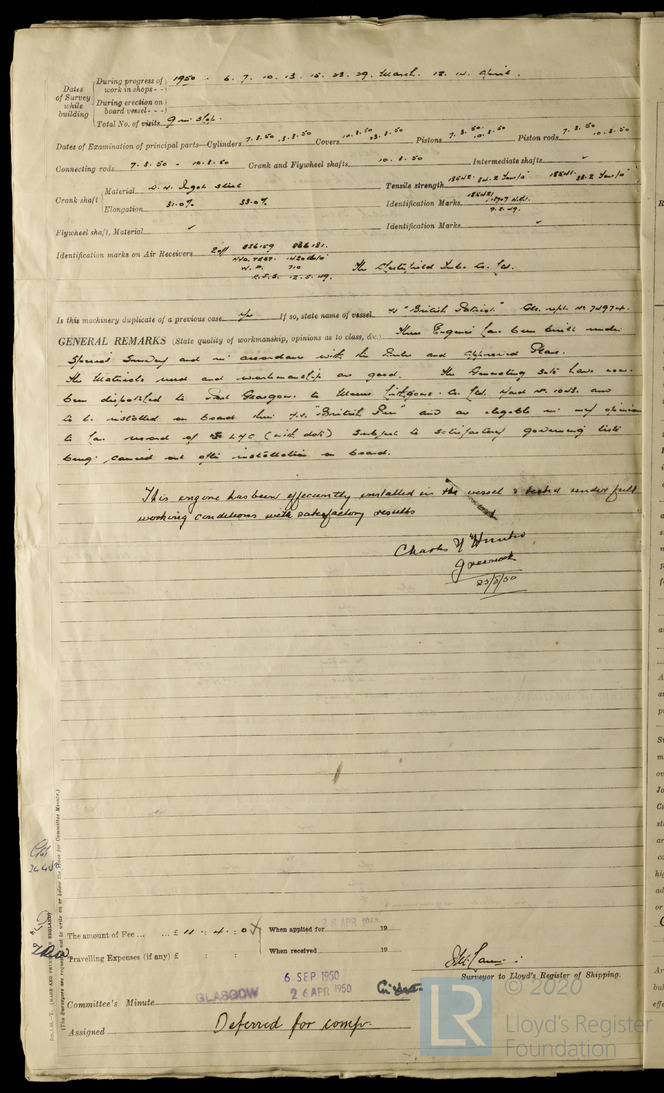 Dates of Survey while building
During progress of work in shops - - 1950 - 6. 7. 10. 13. 15. 23. 29. March. 12. 14. April.
During erection on board vessel - - -
Total No. of visits
Dates of Examination of principal parts—Cylinders 7.3.50 Covers 10.3.50 Pistons 7.3.50 10.3.50 Piston rods 7.3.50 10.3.50
Connecting rods 7.3.50 - 10.3.50 Crank and Flywheel shafts 10.3.50 Intermediate shafts
Crank shaft Material Ingot Steel Tensile strength
Elongation 31.0% 33.0% Identification Marks
Flywheel shaft, Material ✓ Identification Marks ✓
Identification marks on Air Receivers 2 off 836159 836181.
W.P. 710
The Chesterfield Tube Co. Ltd.
Is this machinery duplicate of a previous case yes If so, state name of vessel "British Patriot" Gls. rept. No 74974.
GENERAL REMARKS (State quality of workmanship, opinions as to class, &c.) These Engines have been built under
Special Survey and in accordance with the Rules and approved Plans.
The Materials used and workmanship are good. The Generating Sets have now
been dispatched to Port Glasgow to Messrs Lithgows Co. Ltd. Yard No. 1043. and
to be installed on board their and are eligible in my opinion
to have record of LMC (with date) subject to satisfactory governing tests
being carried out after installation on board.
This engine has been efficiently installed in the vessel & tested under full
working conditions with satisfactory results
Charles Hunter
Greenock
23/8/50
The amount of Fee ... ... £ 11 : 4 : 0 When applied for 26 APR 1950 19
Travelling Expenses (if any) £ : : When received 19
Surveyor to Lloyd's Register of Shipping.
6 SEP 1950
GLASGOW 26 APR 1950
Committee's Minute
Assigned Deferred for compn.
© 2020
LR
Lloyd's Register
Foundation